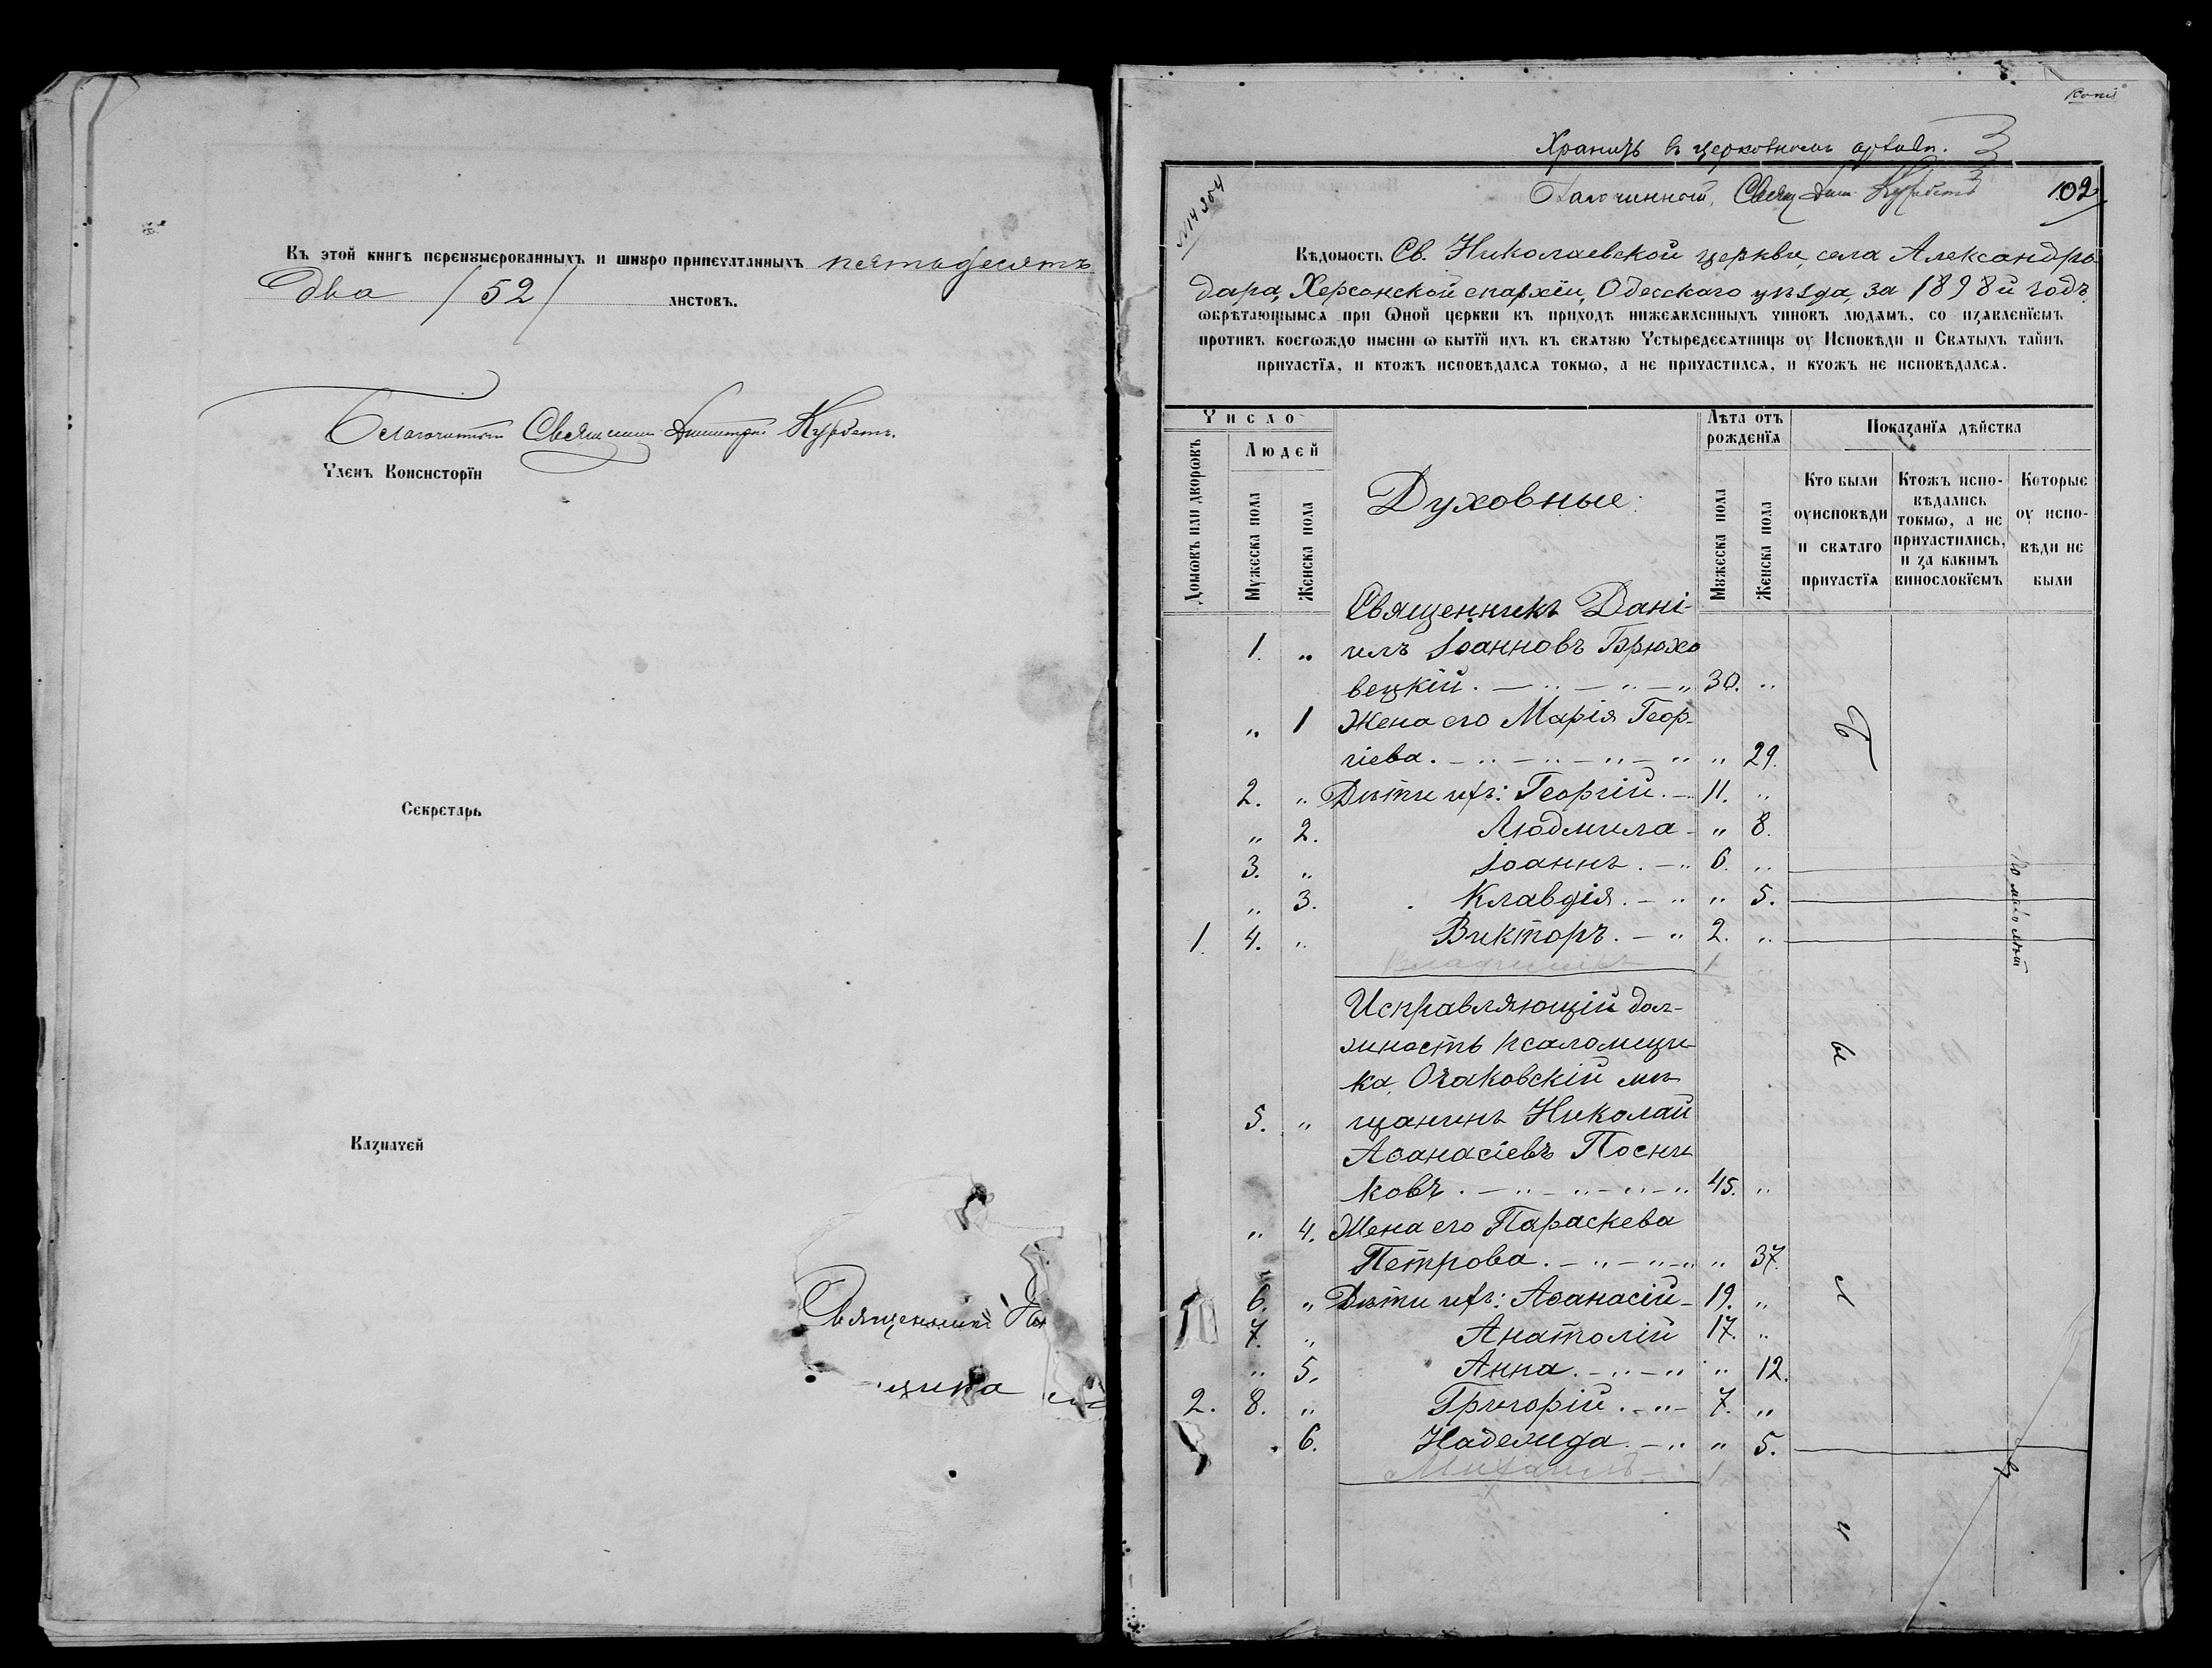 Въ этой книгѣ перенумерованныхъ и шнуро припечатанныхъ пятьдесятъ
два /52/ листовъ.
Благочинный Священникъ Димитрій
Членъ Консисторіи
Секретарь
Казначей
Священникъ
щика
Копія
Хранить въ церковномъ архивѣ.
Благочинный, Свящ. Дим.
102
Вѣдомость Св. Николаевской церкви, села Александро
дара, Херсонской епархіи, Одесскаго уѣзда, за 1898й годъ
ѡбрѣтающымсѧ при Ѡной церкви въ приходѣ нижеѧвленныхъ чиновъ людѧмъ, со изѧвленїемъ
противъ коегѡждо имени ѡ бытїй ихъ въ свѧтую Четыредесѧтницу оу Исповѣди и Свѧтыхъ тайнъ
причастїѧ, и ктожъ исповѣдалсѧ токмѡ, а не причастилсѧ, и кчожъ не исповѣдалсѧ.
Число
Домѡвъ или дворѡвъ
Людей
Мужеска пола
Женска пола
Духовные:
Лѣта отъ рожденїѧ
Мужеска пола
Женска пола
Показанїѧ дѣйства
Кто были оуисповѣди и свѧтаго причастїѧ
Ктожъ испо-вѣдались токмѡ, а не причастились, и за какимъ винословїемъ
Которые оу испо-вѣди не были
Священникъ Дані-
1. „ илъ Іоанновъ Брюхо
вецкій. — „ — „ — „ 30. „
„ 1 Жена его Марія Геор-
гіева. — „ — „ — „ — „ „ 29.
2. „ Дѣти ихъ: Георгій. — 11. „
„ 2. Людмила — „ 8.
3. „ Іоаннъ. — „ 6. „
„ 3. Клавдія. — „ „ 5.
1. 4. „ Викторъ. — „ 2. „
Владиміръ 1
По малолѣт
Исправляющій дол-
жность псаломщи-
ка, Очаковскій мѣ-
5. „ щанинъ Николай
Аѳанасіевъ Посни
ковъ. — „ — „ — „ — „ 45. „
„ 4. Жена его Параскева
Петрова. — „ — „ — „ „ 37.
6. „ Дѣти ихъ: Аѳанасій — 19. „
7. „ Анатолій 17. „
„ 5. Анна. — „ — „ „ 12.
2. 8. „ Григорій. — „ — 7. „
6. Надежда. — „ „ 5.
Михаилъ 1
Б
ы
л
и